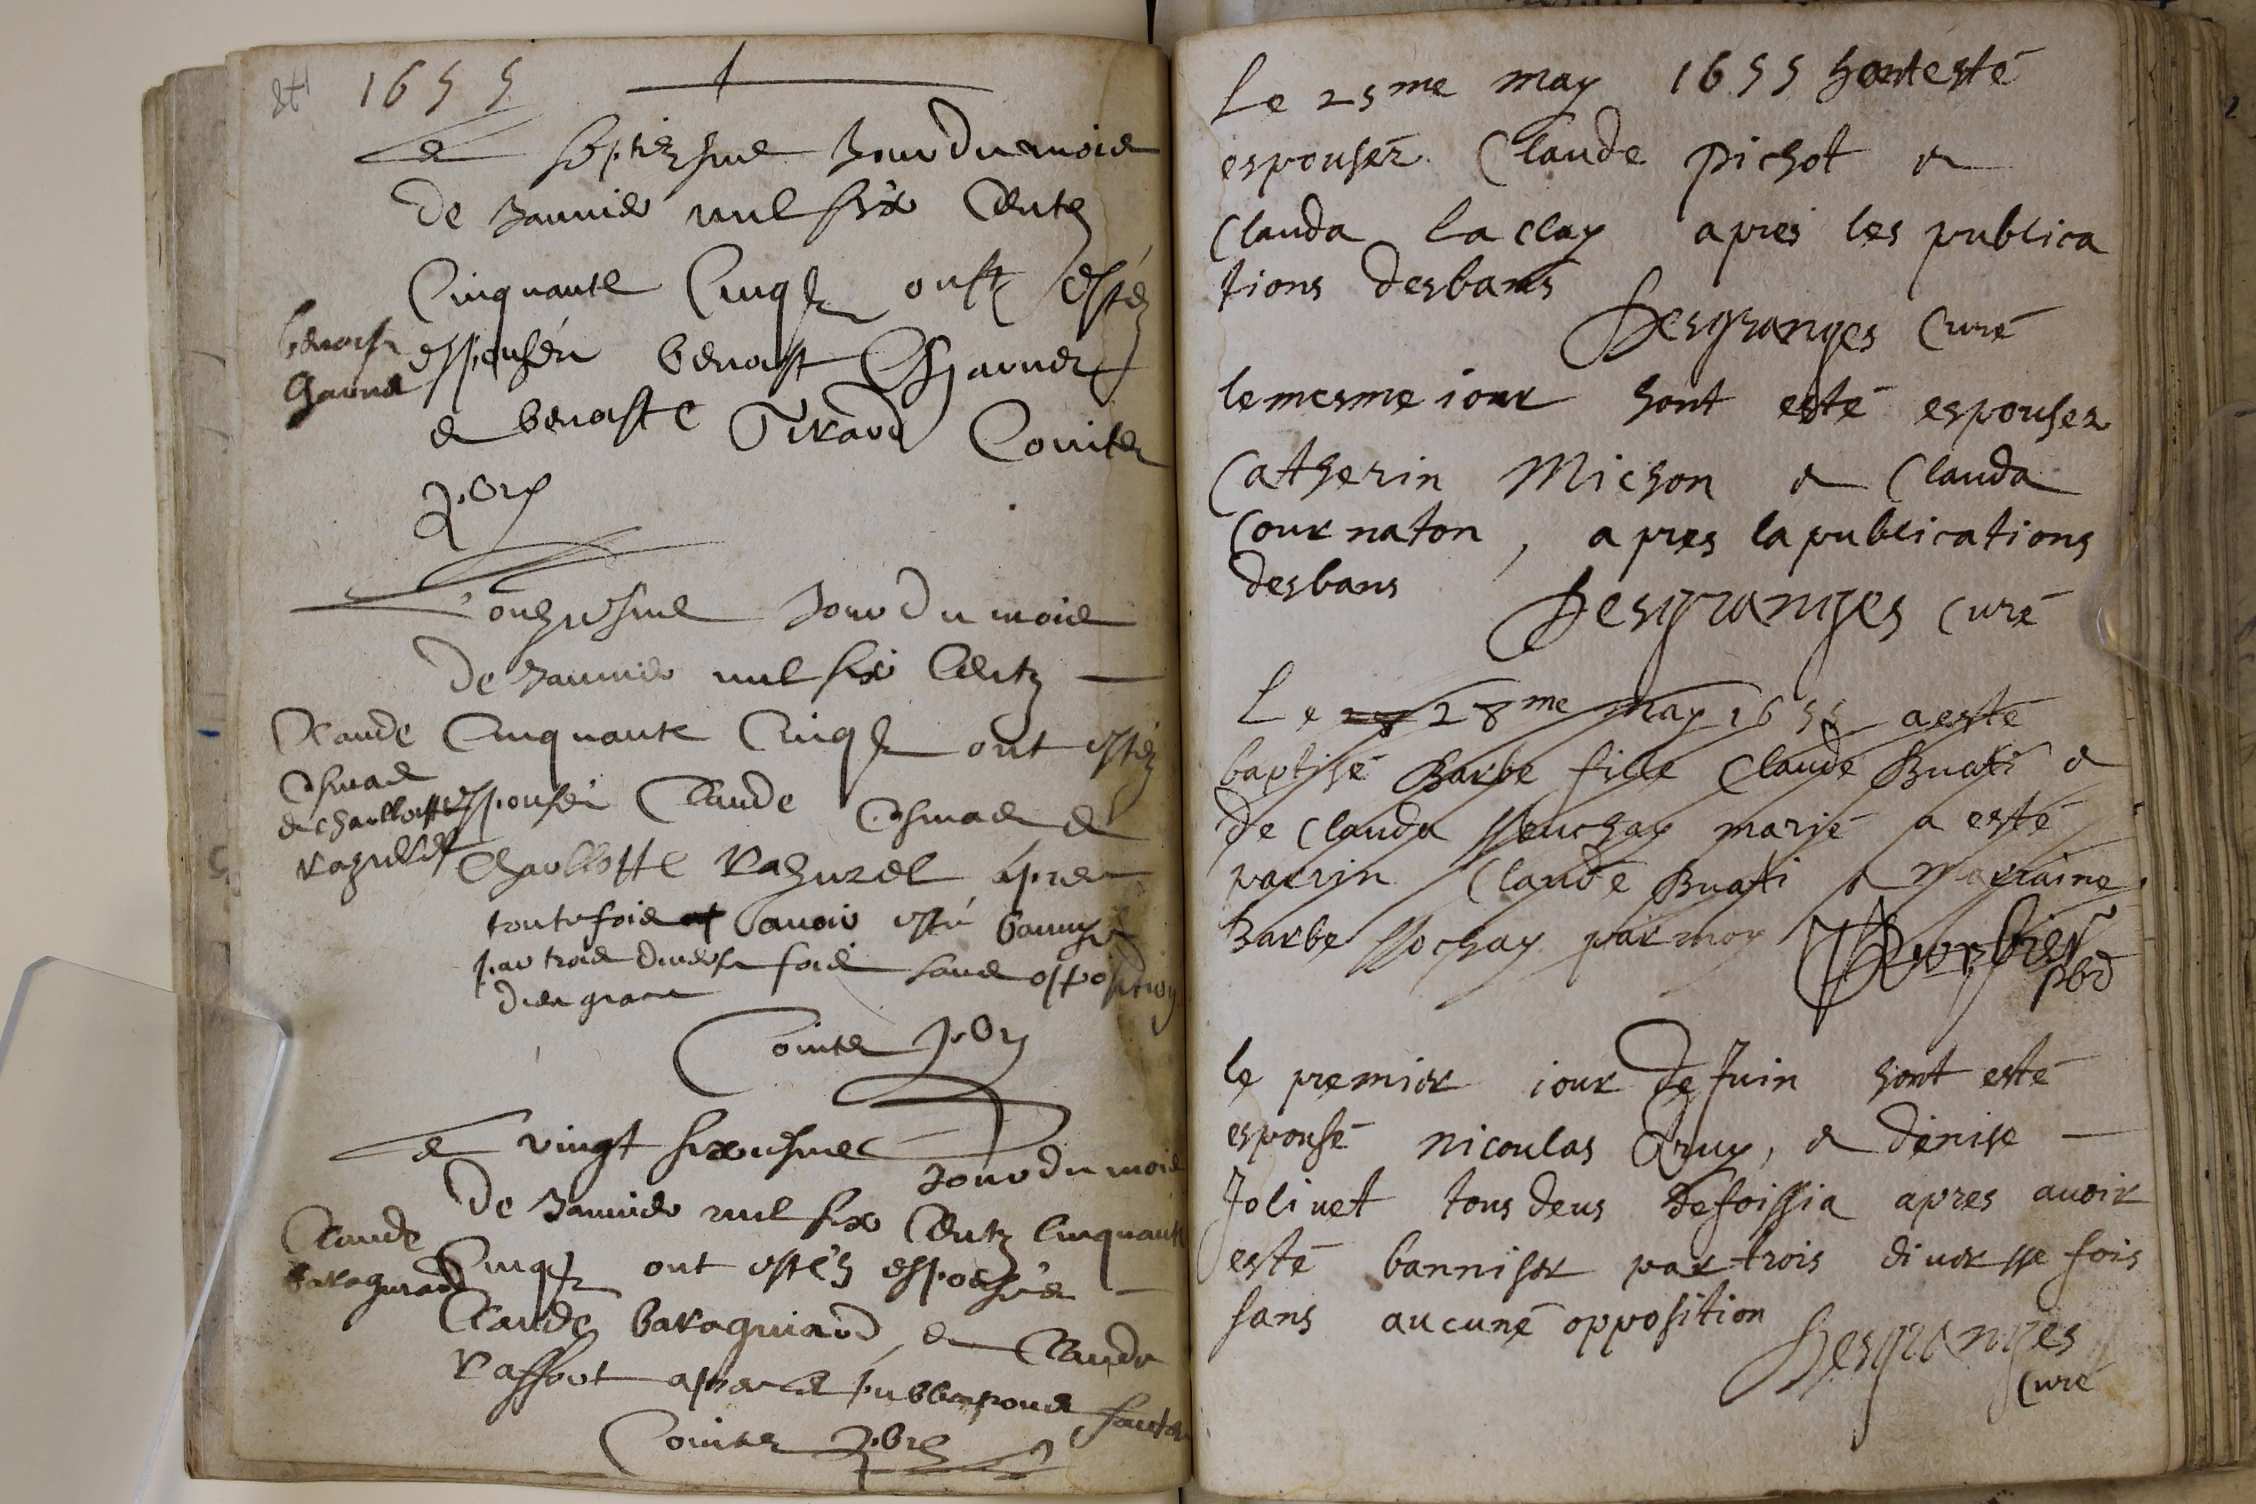 1655
Le septiesme Jour du mois
de Janvier mil six Centz
Cinquante Cinq ont estéz
espousés benoist Charvet
& benoste Giraud
benoist
Le onziesme Jour du mois
de Janvier mil six Centz
Cinquante Cinq ont estéz
espousés Claude &
Charllotte apres
toutefois avoir esté bannys
par trois diverse fois sans opposition
Claude
& Charllotte
Le vingt sixiesme Jour du mois
de Janvier mil six Centz Cinquante
Cinq ont estéz espousés
Claude baraguiaud & Claude
apres le publications faictes
Claude
baraguiaud
Le 25me may 1655 sont esté
espousés Claude pichot &
Clauda la clay apres les publica
tions desbans
Desgranges Curé
le mesme iour sont esté espouses
Catherin Michon & Clauda
Cournaton, apres la publications
desbans
Desgranges curé
Le 28me may 1655 a esté
baptisé Barbe fille Claude Buati &
de Clauda marié a esté
parrin Claude Buati & marraine
Barbe par moy
pbr
le premier iour de Juin sont esté
espousé nicoulas & denise
Jolivet tous deus de foissia apres avoir
esté bannisse par trois diversse fois
sans aucune opposition
Desgranges
Curé